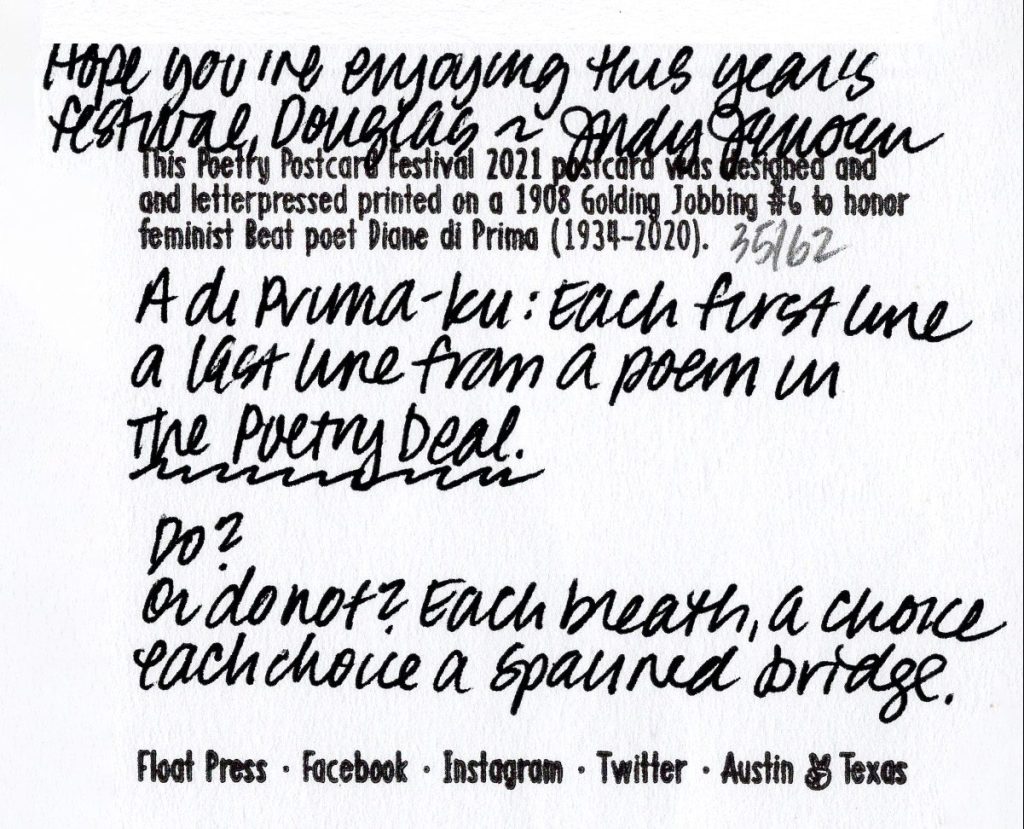 Hope you're enjoying this year's
festival, Douglas ~ Judy
This Poetry Postcard Festival 2021 postcard was designed and
and letterpressed printed on a 1908 Golding Jobbing #6 to honor
feminist Beat poet Diane di Prima (1934–2020). 35/62
A di Prima-ku: Each first line
a last line from a poem in
The Poetry Deal.
Do?
Or do not? Each breath, a choice
each choice a spanned bridge.
Float Press · Facebook · Instagram · Twitter · Austin Texas